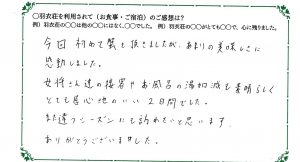 ◯羽衣荘を利用されて（お食事・ご宿泊）のご感想は？
例）羽衣荘の◯◯は他の◯◯にはなく、◯◯でした。 例）羽衣荘の◯◯がとても◯◯で、心に残りました。
今回初めて蟹を頂きましたが、あまりの美味しさに
感動しました。
女将さん達の接客やお風呂の湯加減も素晴らしく
とても居心地のいい2日間でした。
また違うシーズンにも訪れたいと思います。
ありがとうございました。